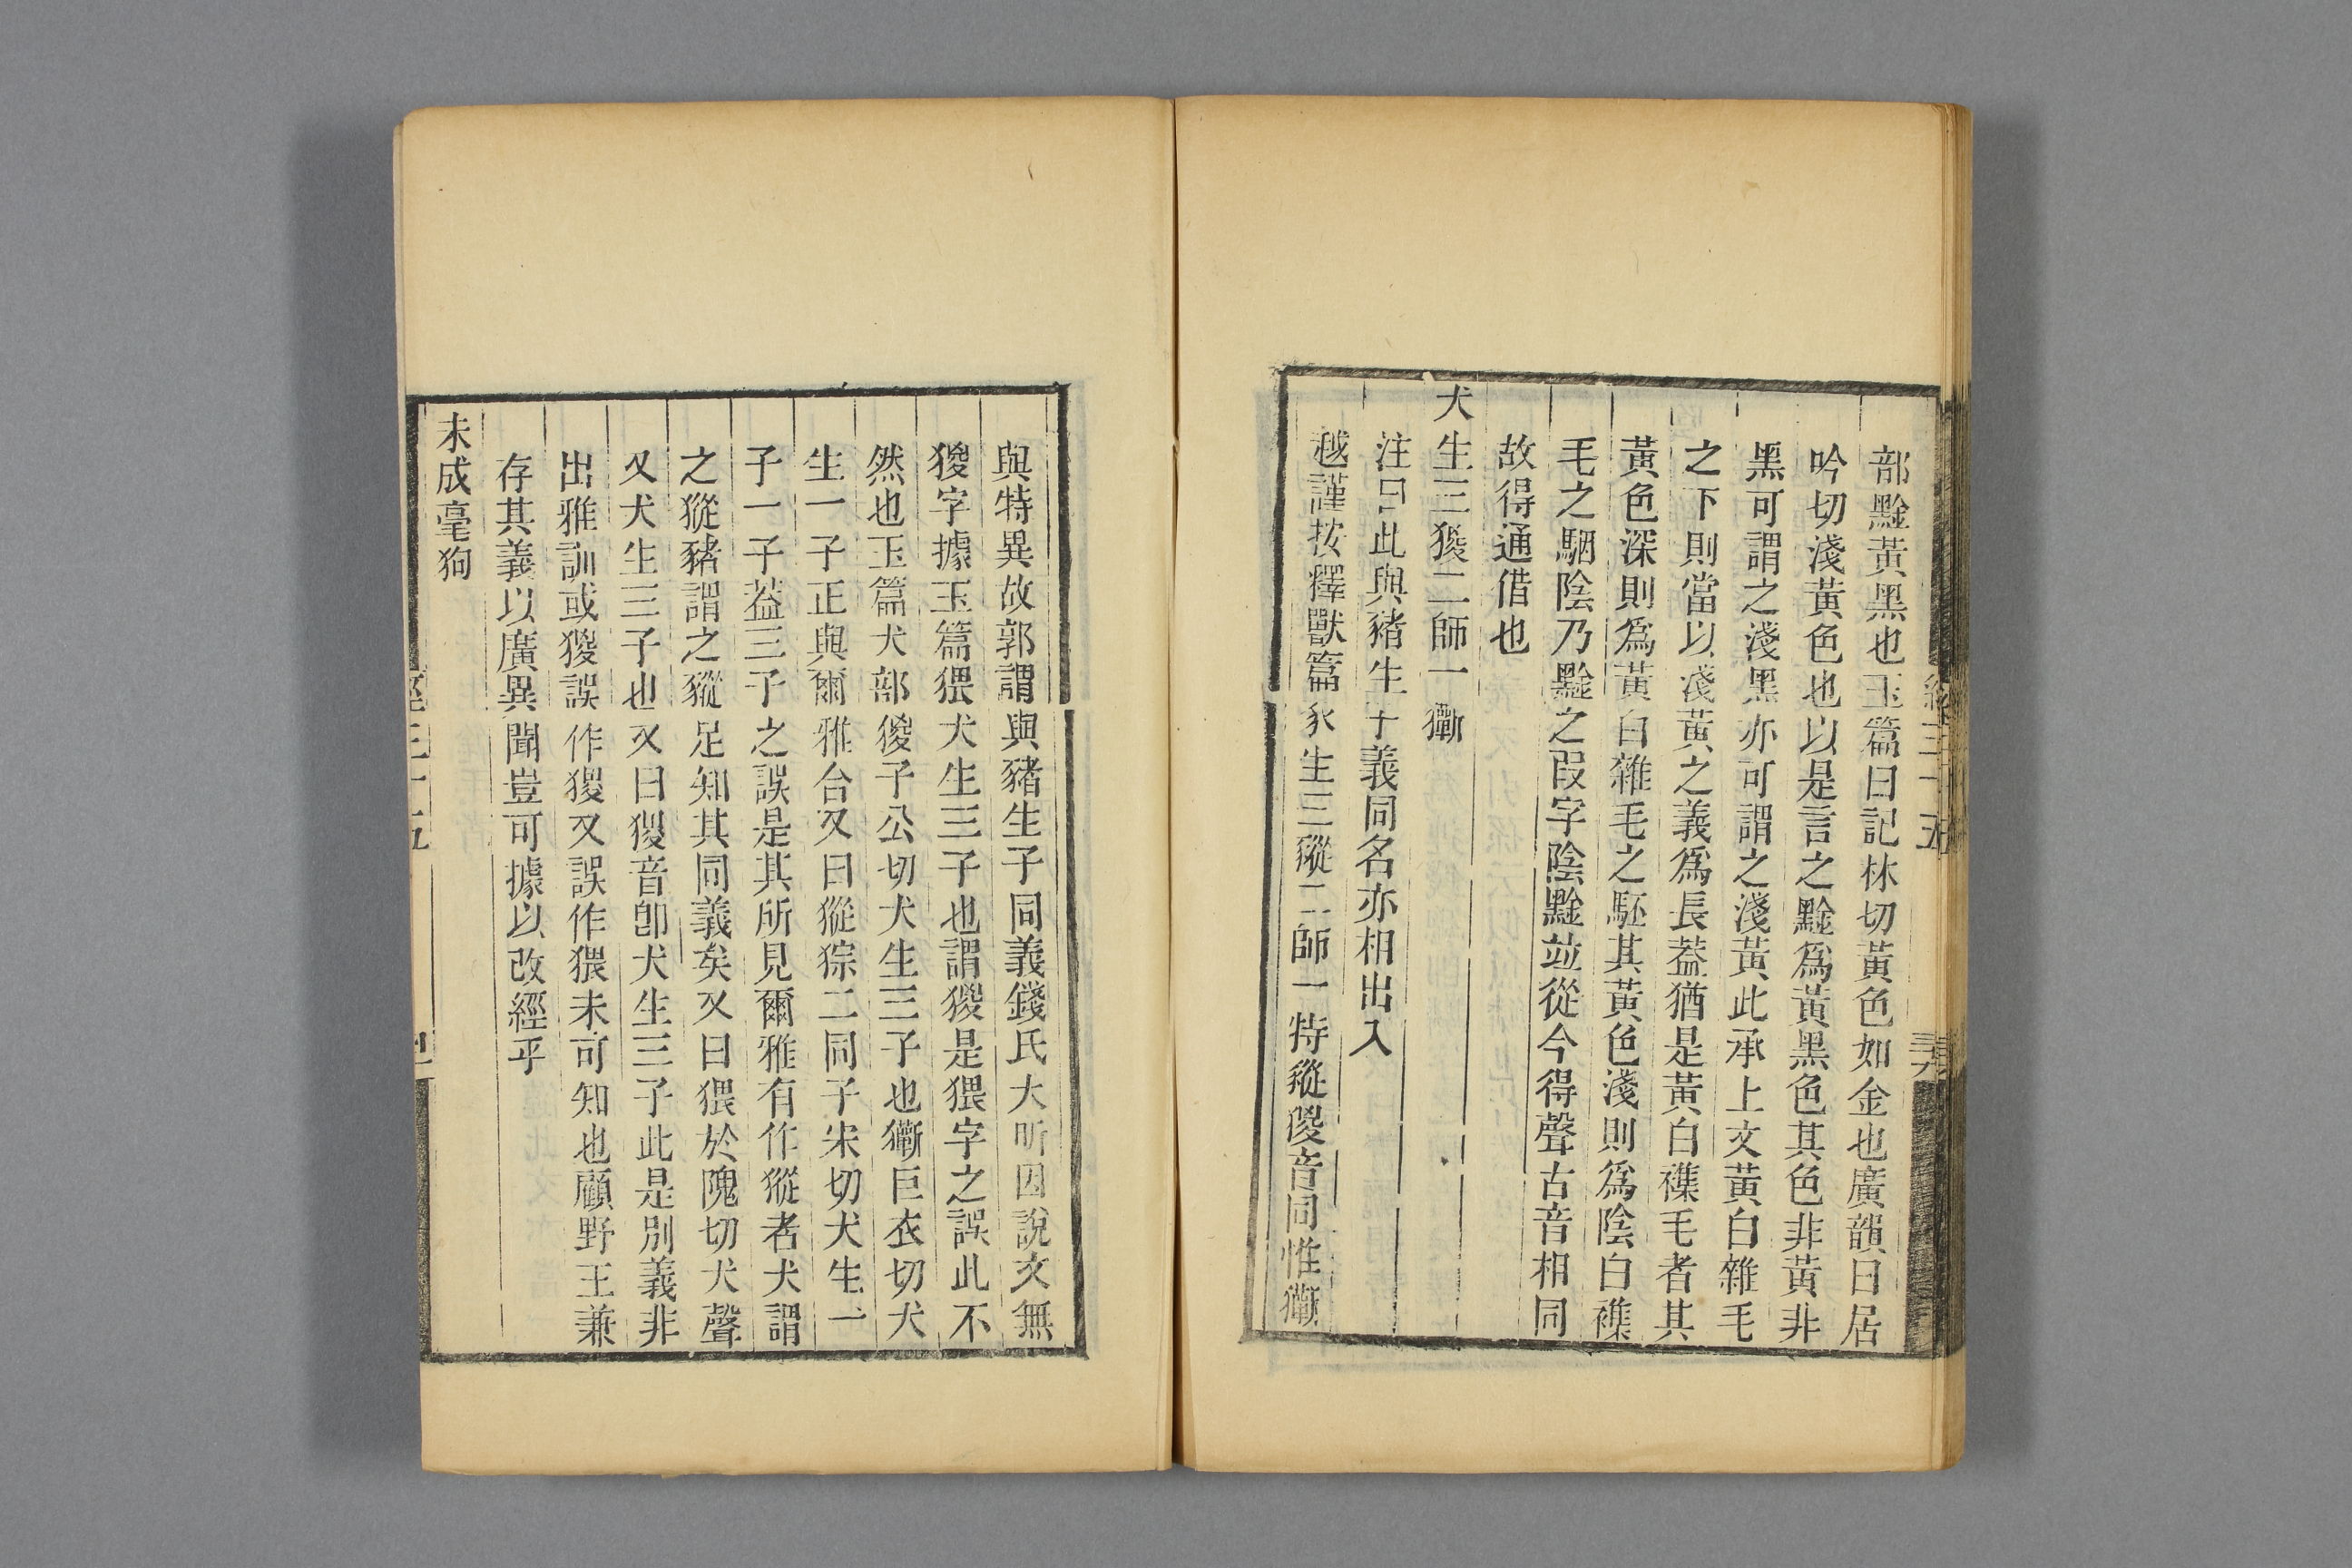 部黅黃黑也玉篇曰記林切黃色如金也廣韻曰居
吟切淺黃色也以是言之黅爲黃黑色其色非黃非
黑可謂之淺黑亦可謂之淺黃此承上文黃白雜毛
之下則當以淺黃之義爲長葢猶是黃白襍毛者其
黃色深則爲黃白雜毛之駓其黃色淺則爲陰白襍
毛之駰陰乃黅之叚字陰黅竝從今得聲古音相同
故得通借也
犬生三猣二師一獑
注曰此與豬生子義同名亦相出入
越謹按釋獸篇豕生三豵二師一特豵猣音同惟獑
與特異故郭謂與豬生子同義錢氏大昕因說文無
猣字據玉篇猥犬生三子也謂猣是猥字之誤此不
然也玉篇犬部猣子公切犬生三子也獑巨衣切犬
生一子正與爾雅合又曰猔猔二同子宋切犬生一
子一子葢三子之誤是其所見爾雅有作猔者犬謂
之猔豬謂之豵足知其同義矣又曰猥於隗切犬聲
又犬生三子也又曰猣音卽犬生三子此是別義非
出雅訓或猣誤作猣又誤作猥未可知也顧野王兼
存其義以廣異聞豈可據以改經乎
未成毫狗
經三十五